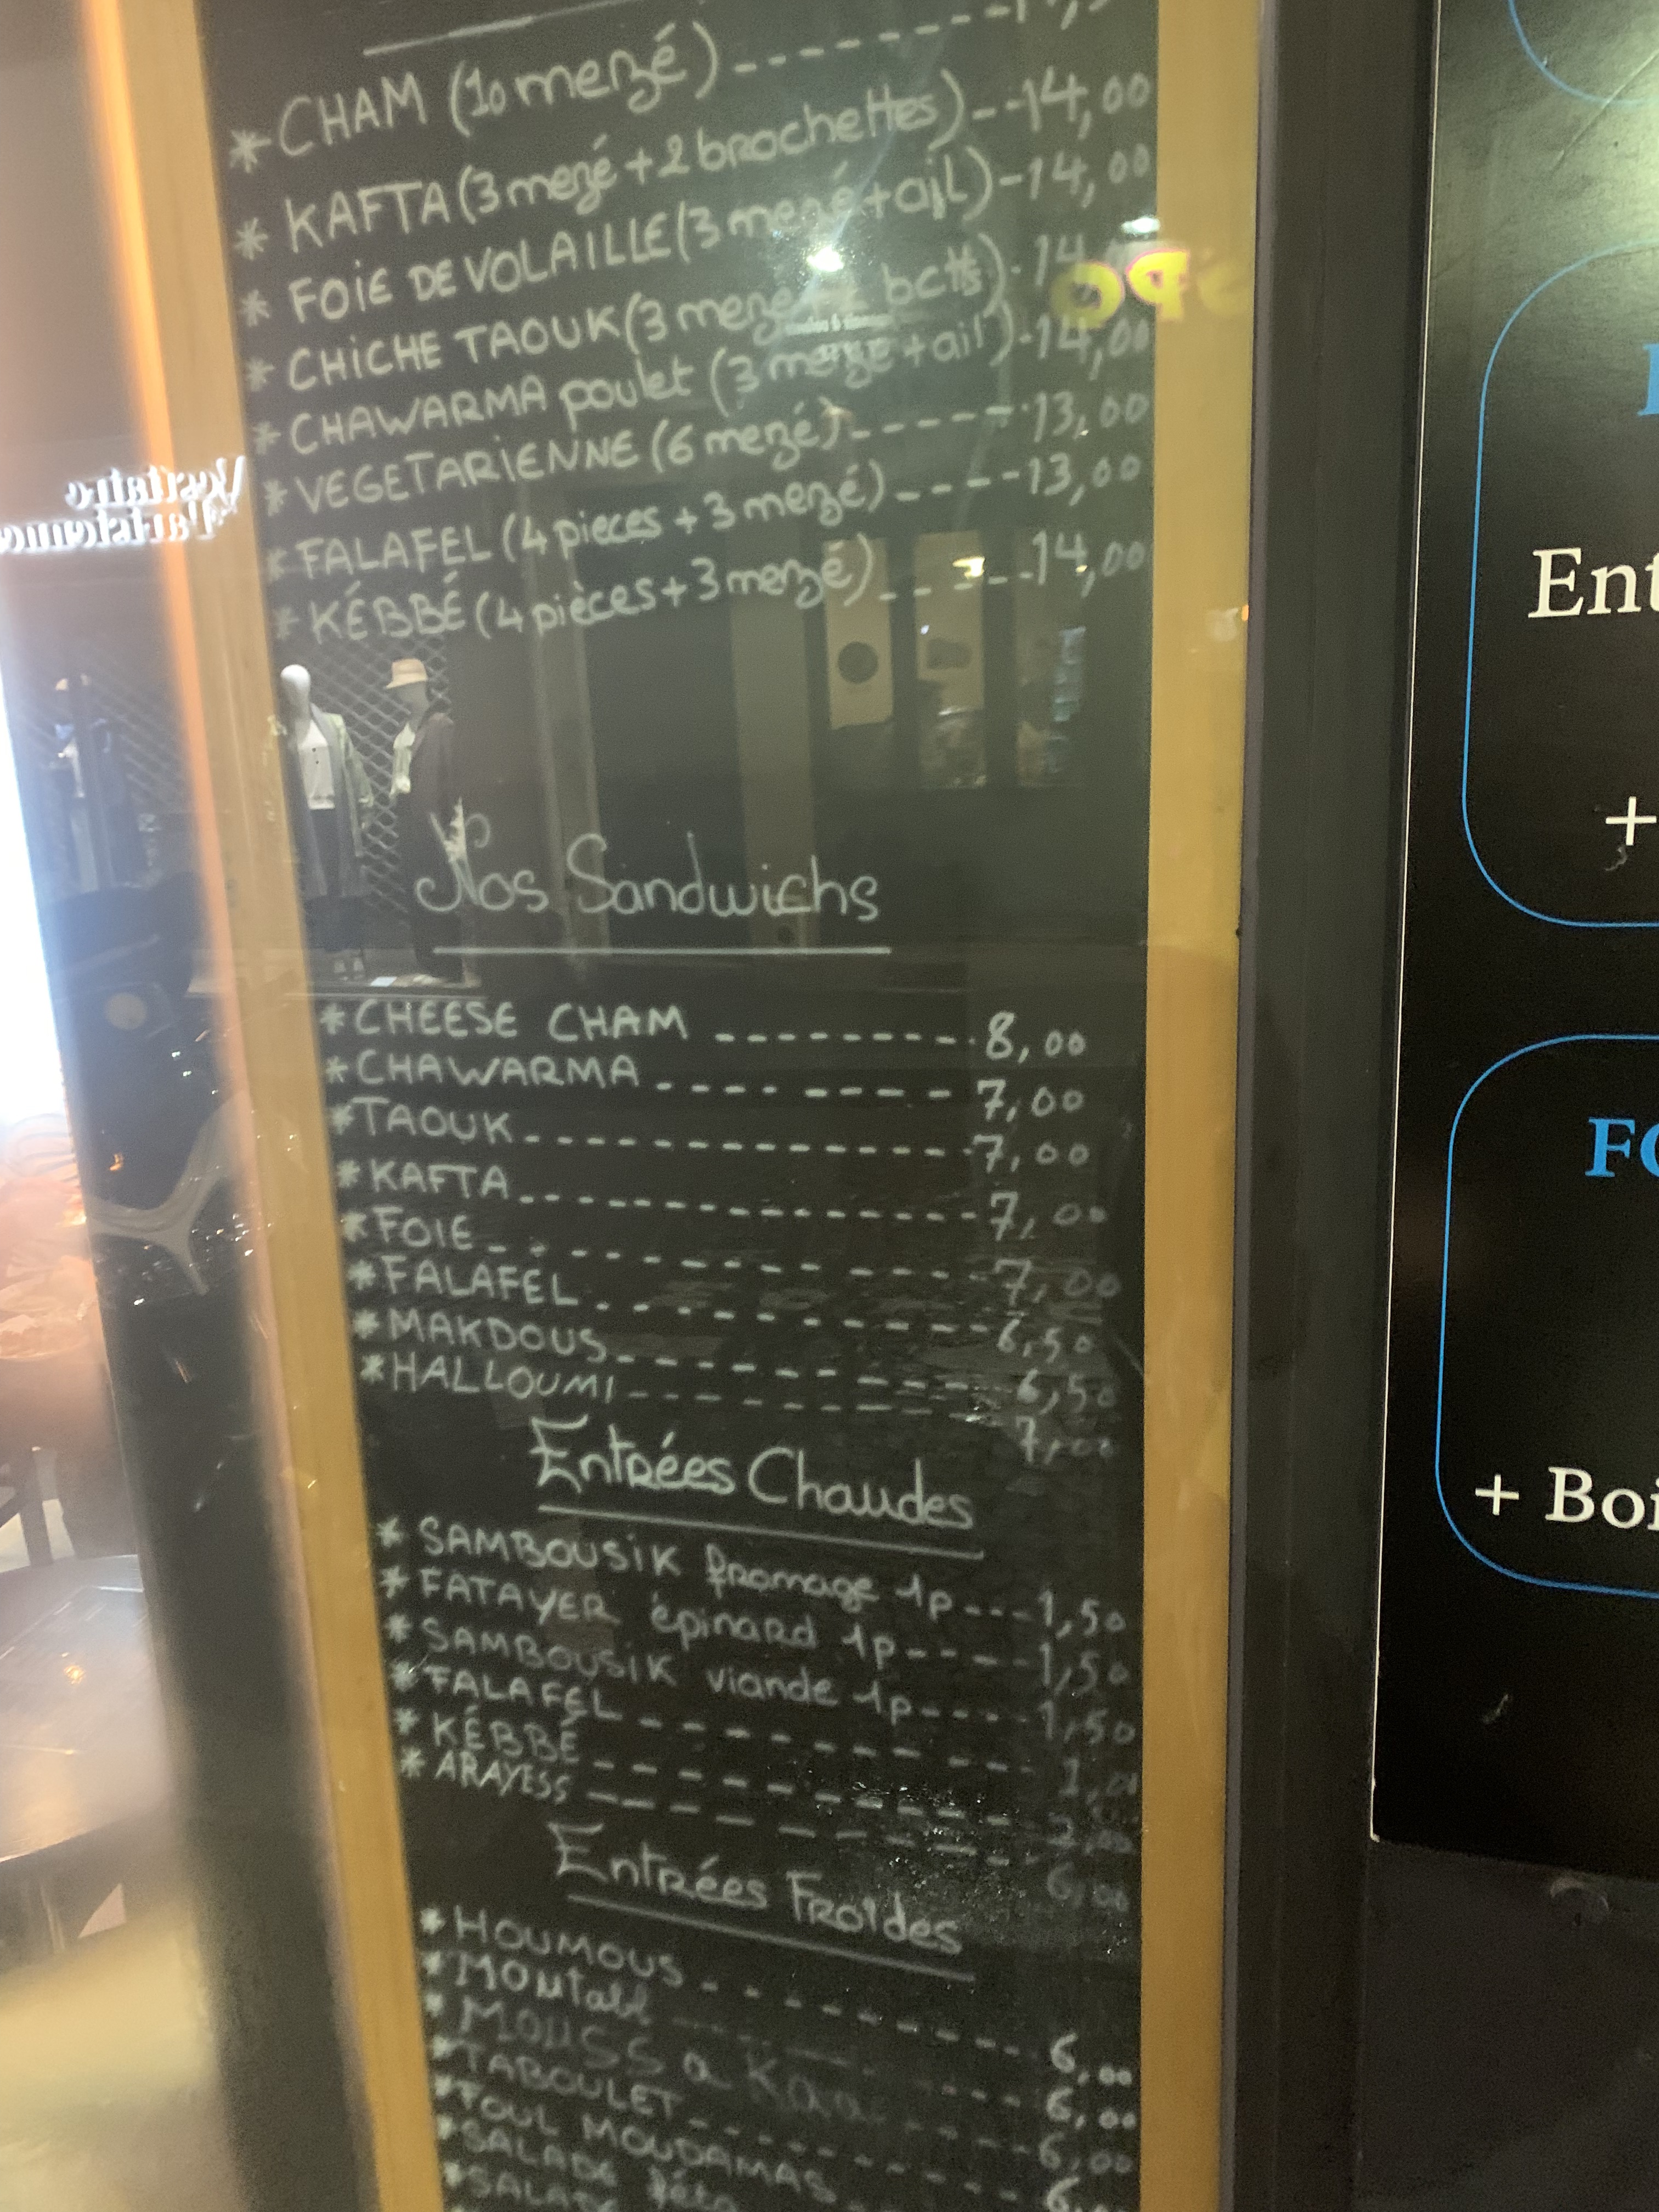 * CHAM (10 mezzé) ---------
* KAFTA (3 mezé + 2 brochettes) --14,00
* FOIE DE VOLAILLE (3 mezé + ail) -14,00
* CHICHE TAOUK (3 mezé + 2 bctts) - 14
* CHAWARMA poulet (3 mezzé + ail) -14,00
* VEGETARIENNE (6 mezé) ------13,00
* FALAFEL (4 pieces + 3 mezzé) -----13,00
* KÉBBÉ (4 pièces + 3 mezzé) -----14,00
Nos Sandwichs
* CHEESE CHAM ---------- 8,00
* CHAWARMA --------- 7,00
* TAOUK --------------- 7,00
* KAFTA --------------- 7,00
* FOIE ------------- 7,00
* FALAFEL ----------- 6,50
* MAKDOUS ---------- 6,50
* HALLOUMI --------- 7,00
Entrées Chaudes
* SAMBOUSIK fromage 1p --- 1,50
* FATAYER épinard 1p ----- 1,50
* SAMBOUSIK viande 1p ---- 1,50
* FALAFEL ----------
* KÉBBÉ ----------
* ARAYESS ---------- 6,00
Entrées Froides
* HOUMOUS --------- 6,00
* MOUTABL --------- 6,00
* MOUSS a Kaa ---- 6,00
* TABOULET --------- 6,
* FOUL MOUDAMAS
* SALADE féta
* SALADE
Ent
+
+ Boi